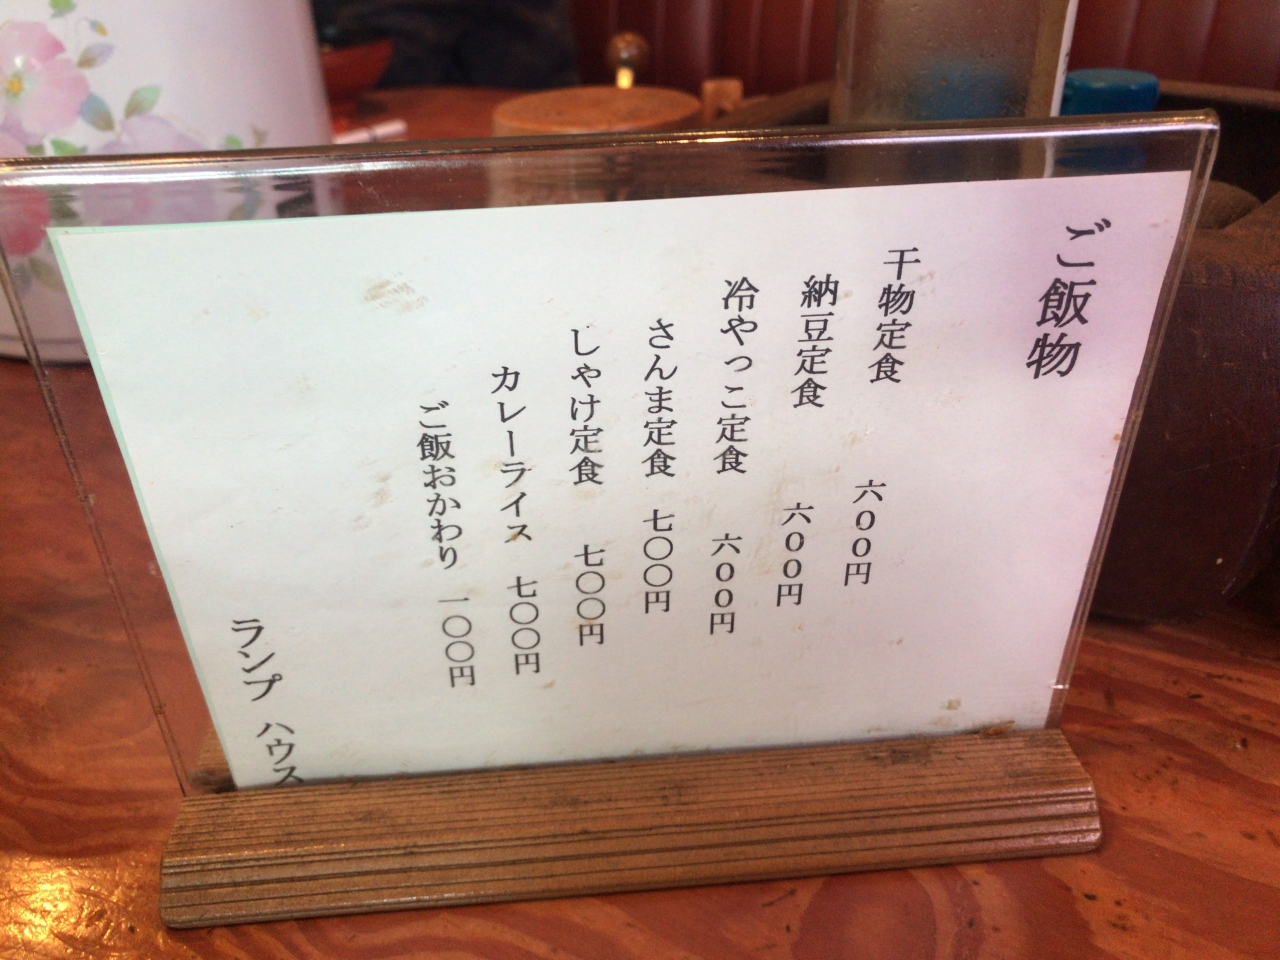 ご飯物
干物定食 六００円
納豆定食 六００円
冷やっこ定食 六００円
さんま定食 七〇〇円
しゃけ定食 七〇〇円
カレーライス 七〇〇円
ご飯おかわり 一〇〇円
ランプ ハウス